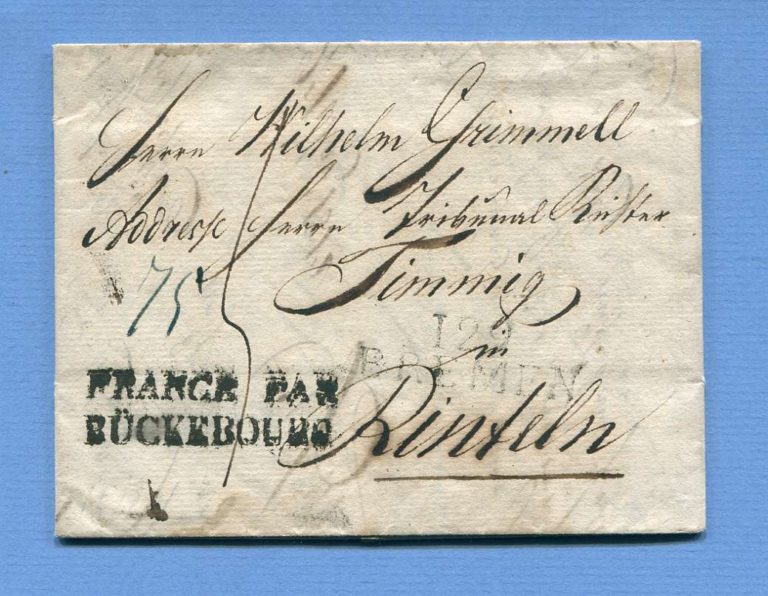 Herrn Wilhelm Grimmell
Addresse Herrn Tribunal Richter
Timmig
75
129
BREMEN
in
FRANCE PAR
BÜCKEBOURG
Rinteln